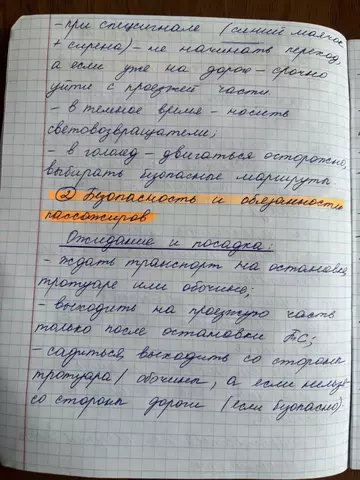 - при спецсигнале (синий маячок
+ сирена) - не начинать переход,
а если уже на дороге - срочно
уйти с проезжей части.
- в темное время - носить
световозвращатели;
- в гололед - двигаться осторожно,
выбирать безопасные маршруты.
② Безопасность и обязанности
пассажиров
Ожидание и посадка:
- ждать транспорт на остановке,
тротуаре или обочине;
- выходить на проезжую часть
только после остановки ТС;
- садиться, выходить со стороны
тротуара / обочины, а если нельзя
со стороны дороги (если безопасно).